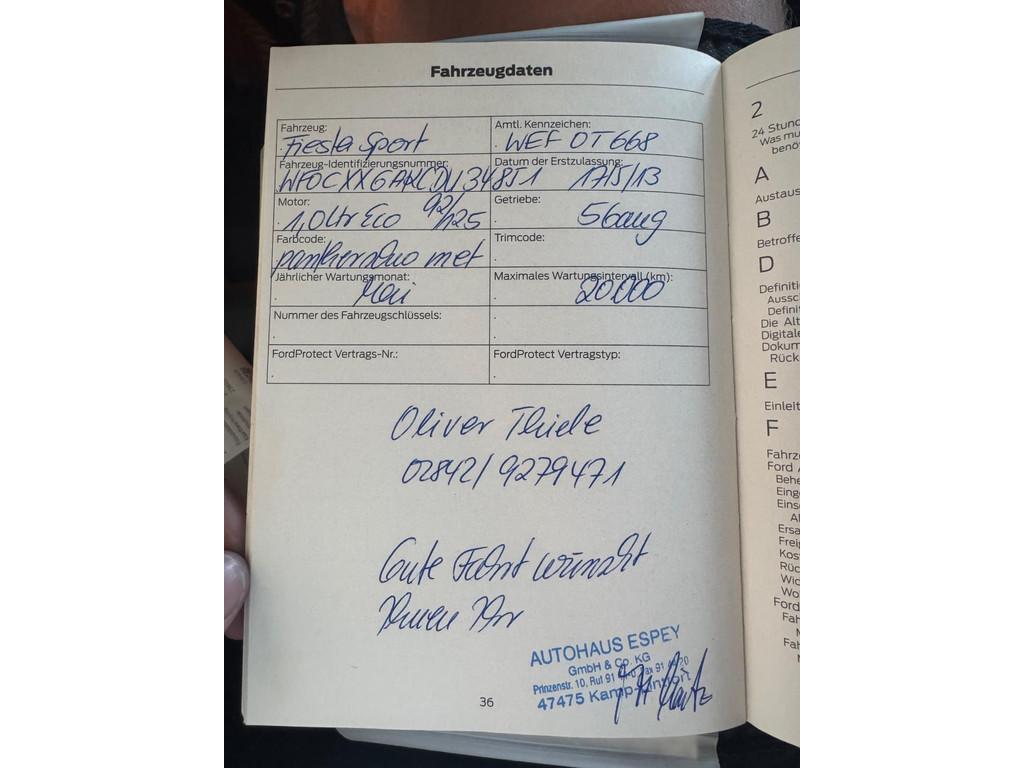 Fahrzeugdaten
Fahrzeug:
Fiesta Sport
Amtl. Kennzeichen:
WEF OT 668
Fahrzeug-Identifizierungsnummer:
Datum der Erstzulassung:
17/5/13
Motor:
1,0 Ltr Eco 92/125
Getriebe:
5Gang
Farbcode:
met
Trimcode:
Jährlicher Wartungsmonat:
Mai
Maximales Wartungsintervall (km):
20.000
Nummer des Fahrzeugschlüssels:
FordProtect Vertrags-Nr.:
FordProtect Vertragstyp:
Oliver Thiele
02842/9279471
Gute Fahrt wünscht
Ihnen Ihr
AUTOHAUS ESPEY
GmbH & Co. KG
Prinzenstr. 10, Ruf 91
47475 Kamp-Lintfort
36
2
24 Stund
Was mu
benö
A
Austaus
B
Betroffe
D
Definiti
Aussc
Defini
Die Alt
Digitale
Dokum
Rück
E
Einleit
F
Fahrz
Ford A
Behe
Eing
Eins
Al
Ersa
Frei
Kos
Rüc
Wic
Wo
Ford
Fah
Fah